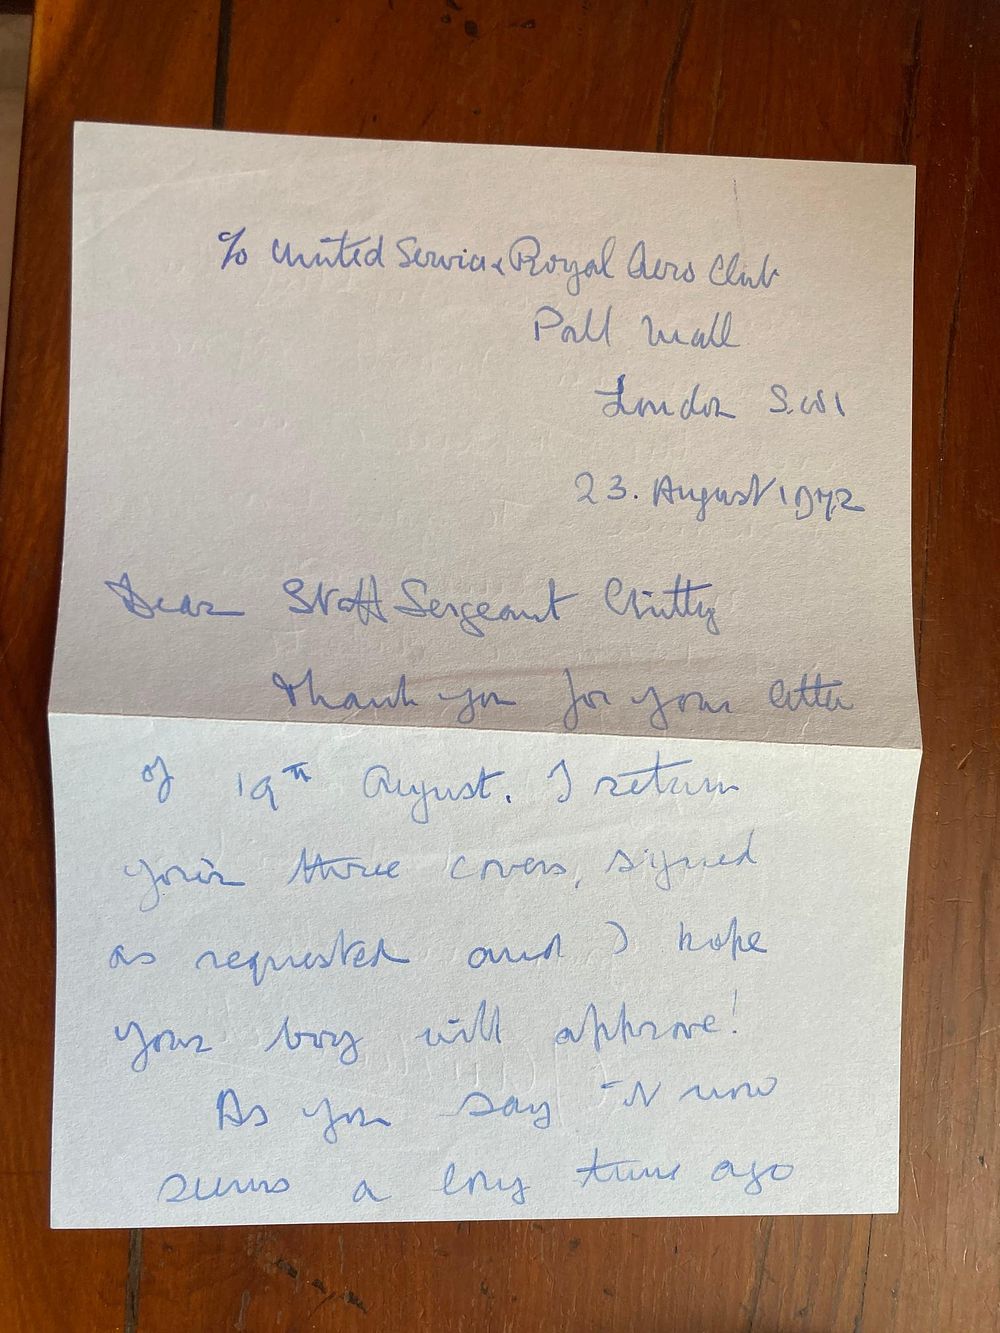 c/o United Service & Royal Aero Club
Pall Mall
London S.W1
23. August 1972
Dear Staff Sergeant Chitty
Thank you for your letter
of 19th August. I return
your three covers, signed
as requested and I hope
your boy will approve!
As you say it now
seems a long time ago